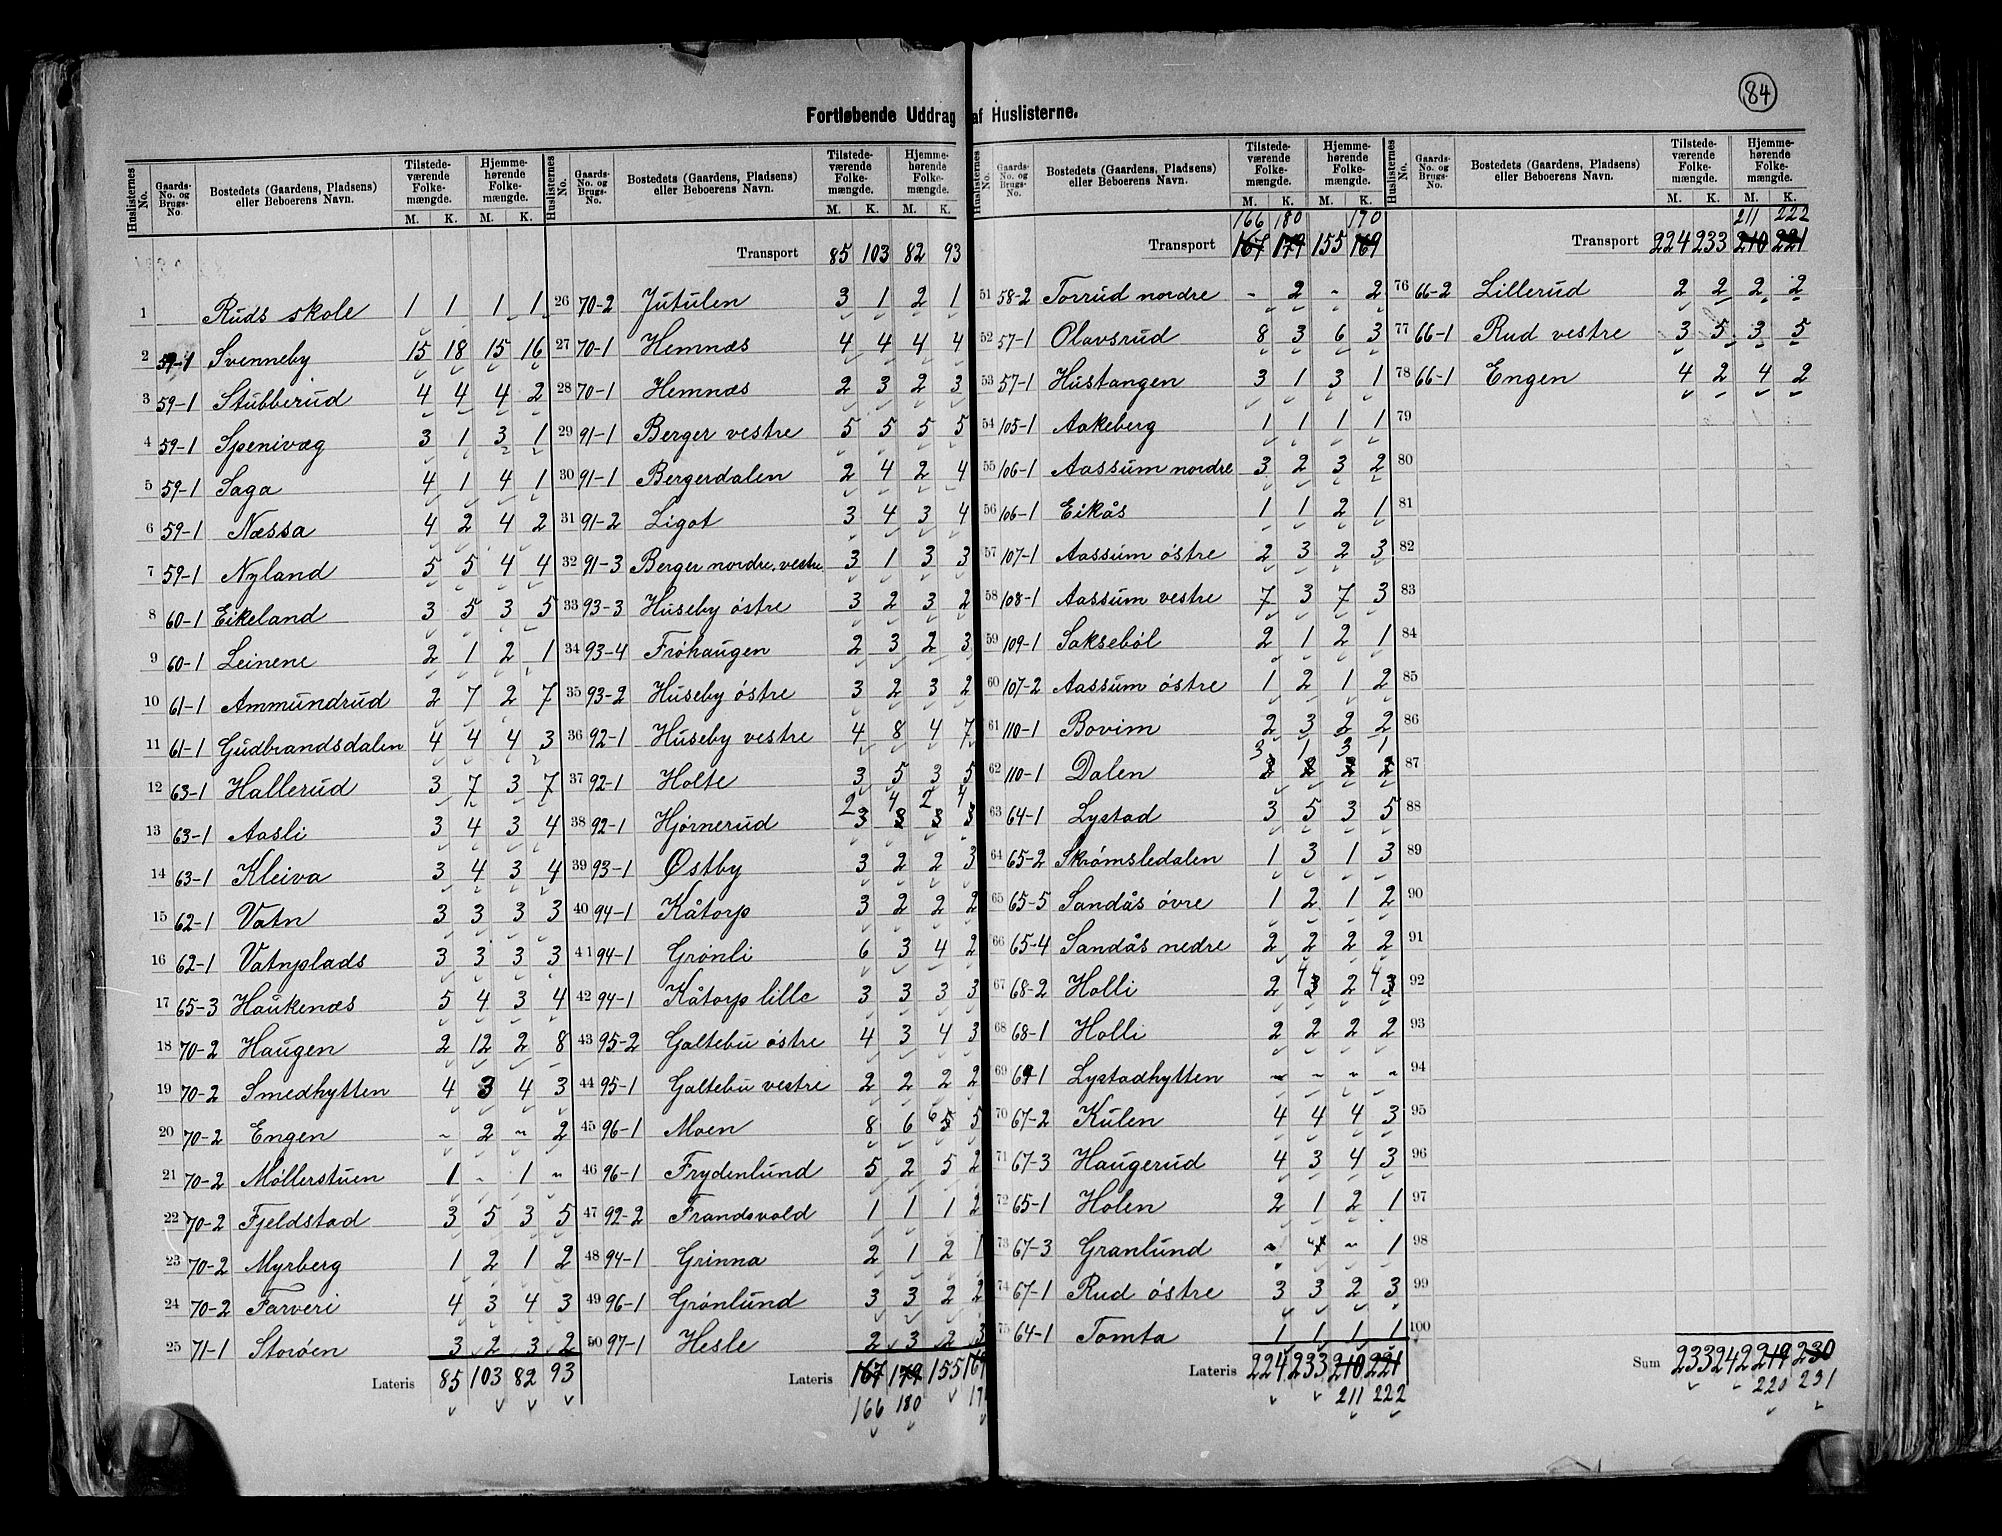 84
Fortløbende Uddrag af Huslisterne.
Huslisternes No. | Gaards-No. og Brugs-No. | Bostedets (Gaardens, Pladsens) eller Beboerens Navn. | Tilstedeværende Folkemængde. M. K. | Hjemmehørende Folkemængde. M. K.
1 Ruds skole 1 1 1 1
2 59-1 Svenneby 15 18 15 16
3 59-1 Stubberud 4 4 4 2
4 59-1 Spenivæg 3 1 3 1
5 59-1 Saga 4 1 4 1
6 59-1 Næssa 4 2 4 2
7 59-1 Nyland 5 5 4 4
8 60-1 Eikeland 3 5 3 5
9 60-1 Leinene 2 1 2 1
10 61-1 Ammundrud 2 7 2 7
11 61-1 Gudbrandsdalen 4 4 4 3
12 63-1 Hallerud 3 7 3 7
13 63-1 Aasli 3 4 3 4
14 63-1 Kleiva 3 4 3 4
15 62-1 Vatn 3 3 3 3
16 62-1 Vatnplads 3 3 3 3
17 65-3 Haukenæs 5 4 3 4
18 70-2 Haugen 2 12 2 8
19 70-2 Smedhytten 4 3 4 3
20 70-2 Engen ~ 2 ~ 2
21 70-2 Møllerstuen 1 - 1 ~
22 70-2 Fjeldstad 3 5 3 5
23 70-2 Myrberg 1 2 1 2
24 70-2 Farveri 4 3 4 3
25 71-1 Storøen 3 2 3 2
Lateris 85 103 82 93
Huslisternes No. | Gaards-No. og Brugs-No. | Bostedets (Gaardens, Pladsens) eller Beboerens Navn. | Tilstedeværende Folkemængde. M. K. | Hjemmehørende Folkemængde. M. K.
Transport 85 103 82 93
26 70-2 Jutulen 3 1 2 1
27 70-1 Hemnæs 4 4 4 4
28 70-1 Hemnæs 2 3 2 3
29 91-1 Berger vestre 5 5 5 5
30 91-1 Bergerdalen 2 4 2 4
31 91-2 Ligot 3 4 3 4
32 91-3 Berger nordre, vestre 3 1 3 3
33 93-3 Huseby östre 3 2 3 2
34 93-4 Fröhaugen 2 3 2 3
35 93-2 Huseby östre 3 2 3 2
36 92-1 Huseby vestre 4 8 4 7
37 92-1 Holte 3 5 3 5
2 4 2 4
38 92-1 Hjørnerud 3 3 3 3
39 93-1 Østby 3 2 2 3
40 94-1 Kåtorp 3 2 2 2
41 94-1 Grønli 6 3 4 2
42 94-1 Kåtorp lille 3 3 3 3
43 95-2 Galtebu östre 4 3 4 3
44 95-1 Galtebu vestre 2 2 2 2
45 96-1 Moen 8 6 6 5 5
46 96-1 Frydenlund 5 2 5 2
47 92-2 Frandsvold 1 1 1 2
48 94-1 Grinna 2 1 2 1
49 96-1 Grönlund 3 3 2 2
50 97-1 Hesle 2 3 2 3
Lateris 167 179 155 169
166 180
Huslisternes No. | Gaards-No. og Brugs-No. | Bostedets (Gaardens, Pladsens) eller Beboerens Navn. | Tilstedeværende Folkemængde. M. K. | Hjemmehørende Folkemængde. M. K.
166 180 190
Transport 167 179 155 169
51 58-2 Torrud nordre - 2 - 2
52 57-1 Olavsrud 8 3 6 3
53 57-1 Hustangen 3 1 3 1
54 105-1 Aakeberg 1 1 1 1
55 106-1 Aassum nordre 3 2 3 2
56 106-1 Eikås 1 1 2 1
57 107-1 Aassum östre 2 3 2 3
58 108-1 Aassum vestre 7 3 7 3
59 109-1 Saksebøl 2 1 2 1
60 107-2 Aassum östre 1 2 1 2
61 110-1 Bovim 2 3 2 2
3 1 3 1
62 110-1 Dalen 2 2 2 2
63 64-1 Lystad 3 5 3 5
64 65-2 Skrømsledalen 1 3 1 3
65 65-5 Sandås övre 1 2 1 2
66 65-4 Sandås nedre 2 2 2 2
67 68-2 Holli 2 4 3 2 4 3
68 68-1 Holli 2 2 2 2
69 69-1 Lystadhytten ~ ~ ~ ~
70 67-2 Kulen 4 4 4 3
71 67-3 Haugerud 4 3 4 3
72 65-1 Holen 2 1 2 1
73 67-3 Granlund ~ 1 ~ 1
74 67-1 Rud östre 3 3 2 3
75 64-1 Tomta 1 1 1 1
Lateris 224 233 210 221
211 222
Huslisternes No. | Gaards-No. og Brugs-No. | Bostedets (Gaardens, Pladsens) eller Beboerens Navn. | Tilstedeværende Folkemængde. M. K. | Hjemmehørende Folkemængde. M. K.
211 222
Transport 224 233 210 221
76 66-2 Lillerud 2 2 2 2
77 66-1 Rud vestre 3 5 3 5
78 66-1 Engen 4 2 4 2
79
80
81
82
83
84
85
86
87
88
89
90
91
92
93
94
95
96
97
98
99
100
Sum 233 242 219 230
220 231